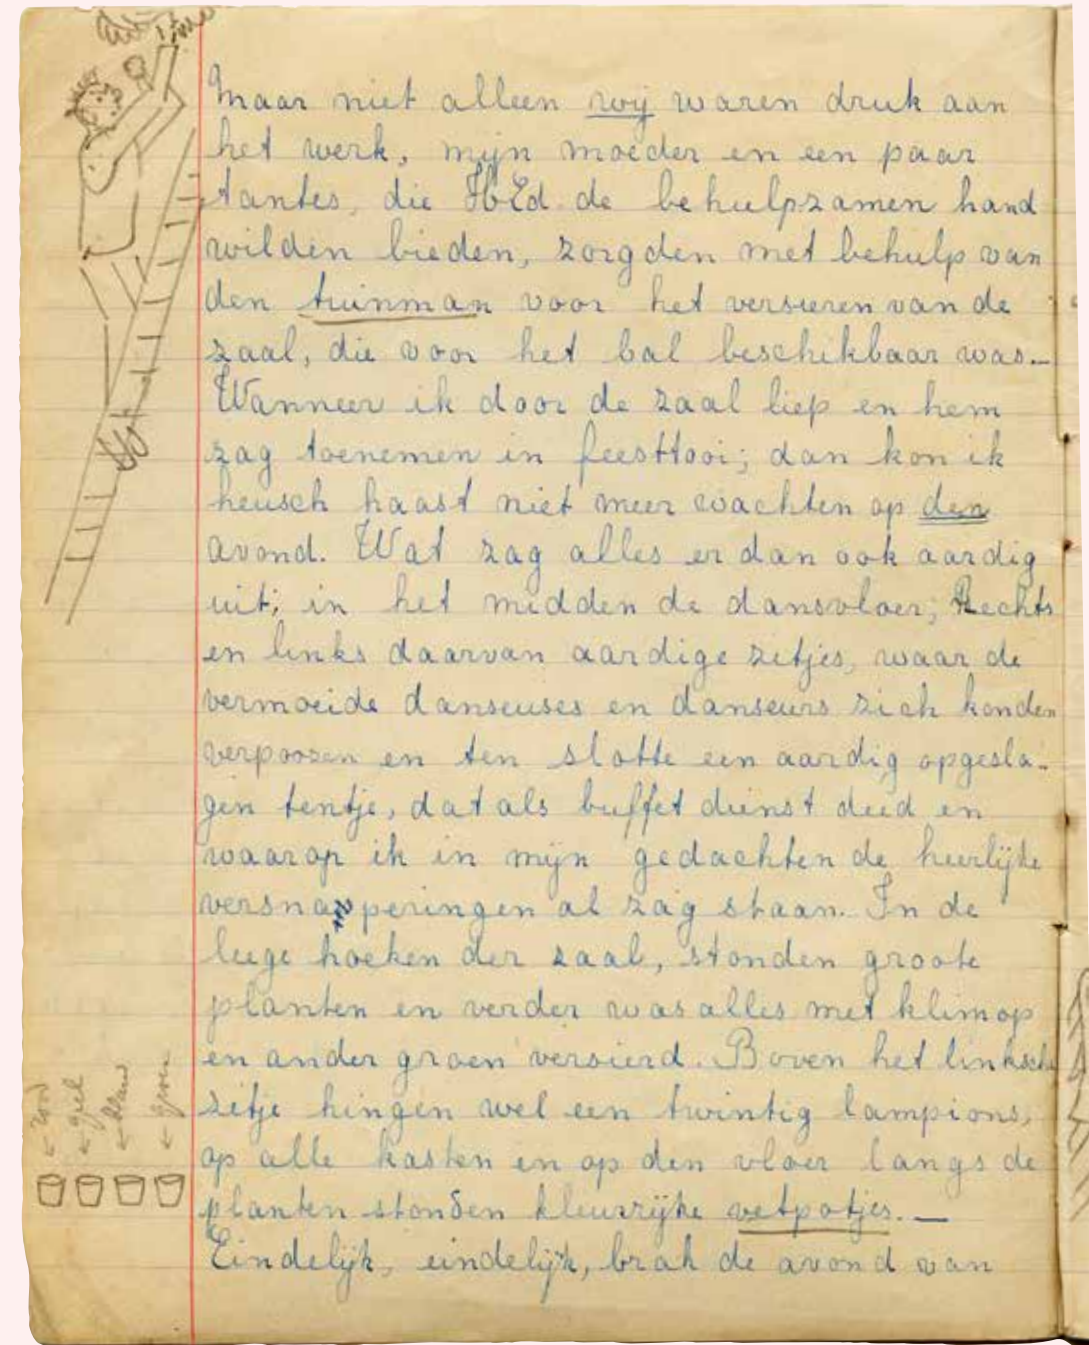 Maar niet alleen wij waren druk aan
het werk, mijn moeder en een paar
tantes, die HEd. de behulpzamen hand
wilden bieden, zorgden met behulp van
den tuinman voor het versieren van de
zaal, die voor het bal beschikbaar was.—
Wanneer ik door de zaal liep en hem
zag toenemen in feesttooi; dan kon ik
heusch haast niet meer wachten op den
avond. Wat zag alles er dan ook aardig
uit; in het midden de dansvloer; Rechts
en links daarvan aardige zitjes, waar de
vermoeide danseuses en danseurs zich konden
verpoozen en ten slotte een aardig opgesla-
gen tentje, dat als buffet dienst deed en
waarop ik in mijn gedachten de heerlijke
versnaperingen al zag staan. In de
leege hoeken der zaal, stonden groote
planten en verder was alles met klimop
en ander groen versierd. Boven het linksche
zitje hingen wel een twintig lampions,
op alle kasten en op den vloer langs de
planten stonden kleurrijke vetpotjes. —
Eindelijk, eindelijk, brak de avond van
← rood
← geel
← blauw
← groen